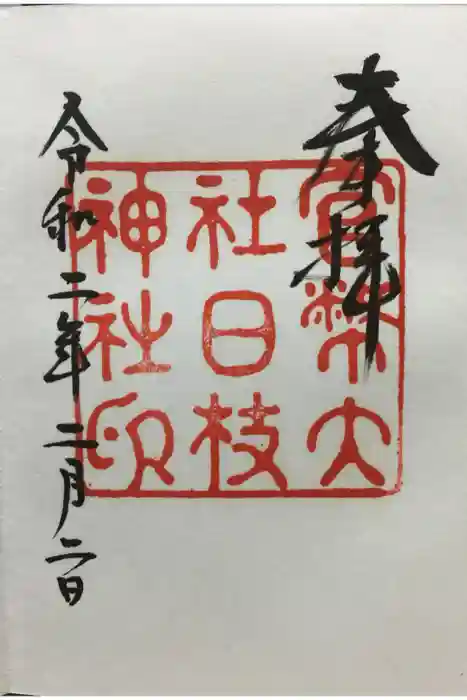 奉拝
官幣大
社日枝
神社印
令和二年二月二日